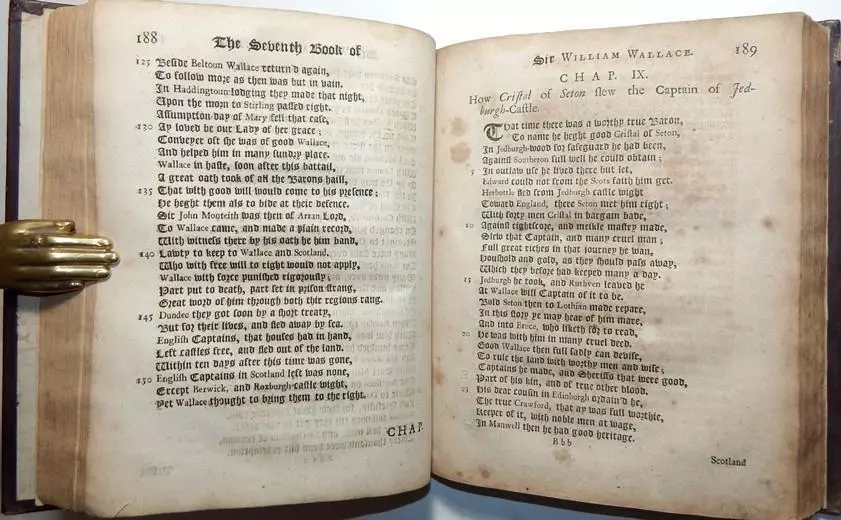 188
The Seventh Book of
125 Beside Beltoun Wallace return'd again,
To follow more as then was but in vain.
In Haddingtoun lodging they made that night,
Upon the morn to Stirling passed right.
Assumption-day of Mary fell that case,
130 Ay loved be our Lady of her grace;
Conveyer oft she was of good Wallace,
And helped him in many sundry place.
Wallace in haste, soon after this battail,
A great oath took of all the Barons haill,
135 That with good will would come to his presence;
He heght them als to bide at their defence.
Sir John Monteith was then of Arran Lord,
To Wallace came, and made a plain record,
With witness there by his oath he him band,
140 Lawty to keep to Wallace and Scotland.
Who with free will to right would not apply,
Wallace with force punished rigorously;
Part put to death, part set in prison strang,
Great word of him through both the regions rang.
145 Dundee they got soon by a short treaty,
But for their lives, and fled away by sea.
English Captains, that houses had in hand,
Left castles free, and fled out of the land.
Within ten days after this time was gone,
150 English Captains in Scotland left was none,
Except Berwick, and Roxburgh-castle wight,
Yet Wallace thought to bring them to the right.
CHAP.
Sir WILLIAM WALLACE.
189
CHAP. IX.
How Cristal of Seton slew the Captain of Jed-
burgh-Castle.
That time there was a worthy true Baron,
To name he heght good Cristal of Seton,
In Jedburgh-wood for safeguard he had been,
Against Southeron full well he could obtain;
5 In outlaw use he lived there but let,
Edward could not from the Scots faith him get.
Herbottle fled from Jedburgh castle wight
Toward England, there Seton met him right;
With forty men Cristal in bargain bade,
10 Against eightscore, and meikle mastry made,
Slew that Captain, and many cruel man;
Full great riches in that journey he wan,
Houshold and gold, as they should pass away,
Which they before had keeped many a day.
15 Jedburgh he took, and Ruthven leaved he
At Wallace will Captain of it to be.
Bold Seton then to Lothian made repare,
In this story ye may hear of him mare,
And into Bruce, who liketh for to read,
20 He was with him in many cruel deed.
Good Wallace then full sadly can devise,
To rule the land with worthy men and wise;
Captains he made, and Sheriffs that were good,
Part of his kin, and of true other blood.
25 His dear cousin in Edinburgh ordain'd he,
The true Crawford, that ay was full worthie,
Keeper of it, with noble men at wage,
In Manwell then he had good heritage.
B b b
Scotland